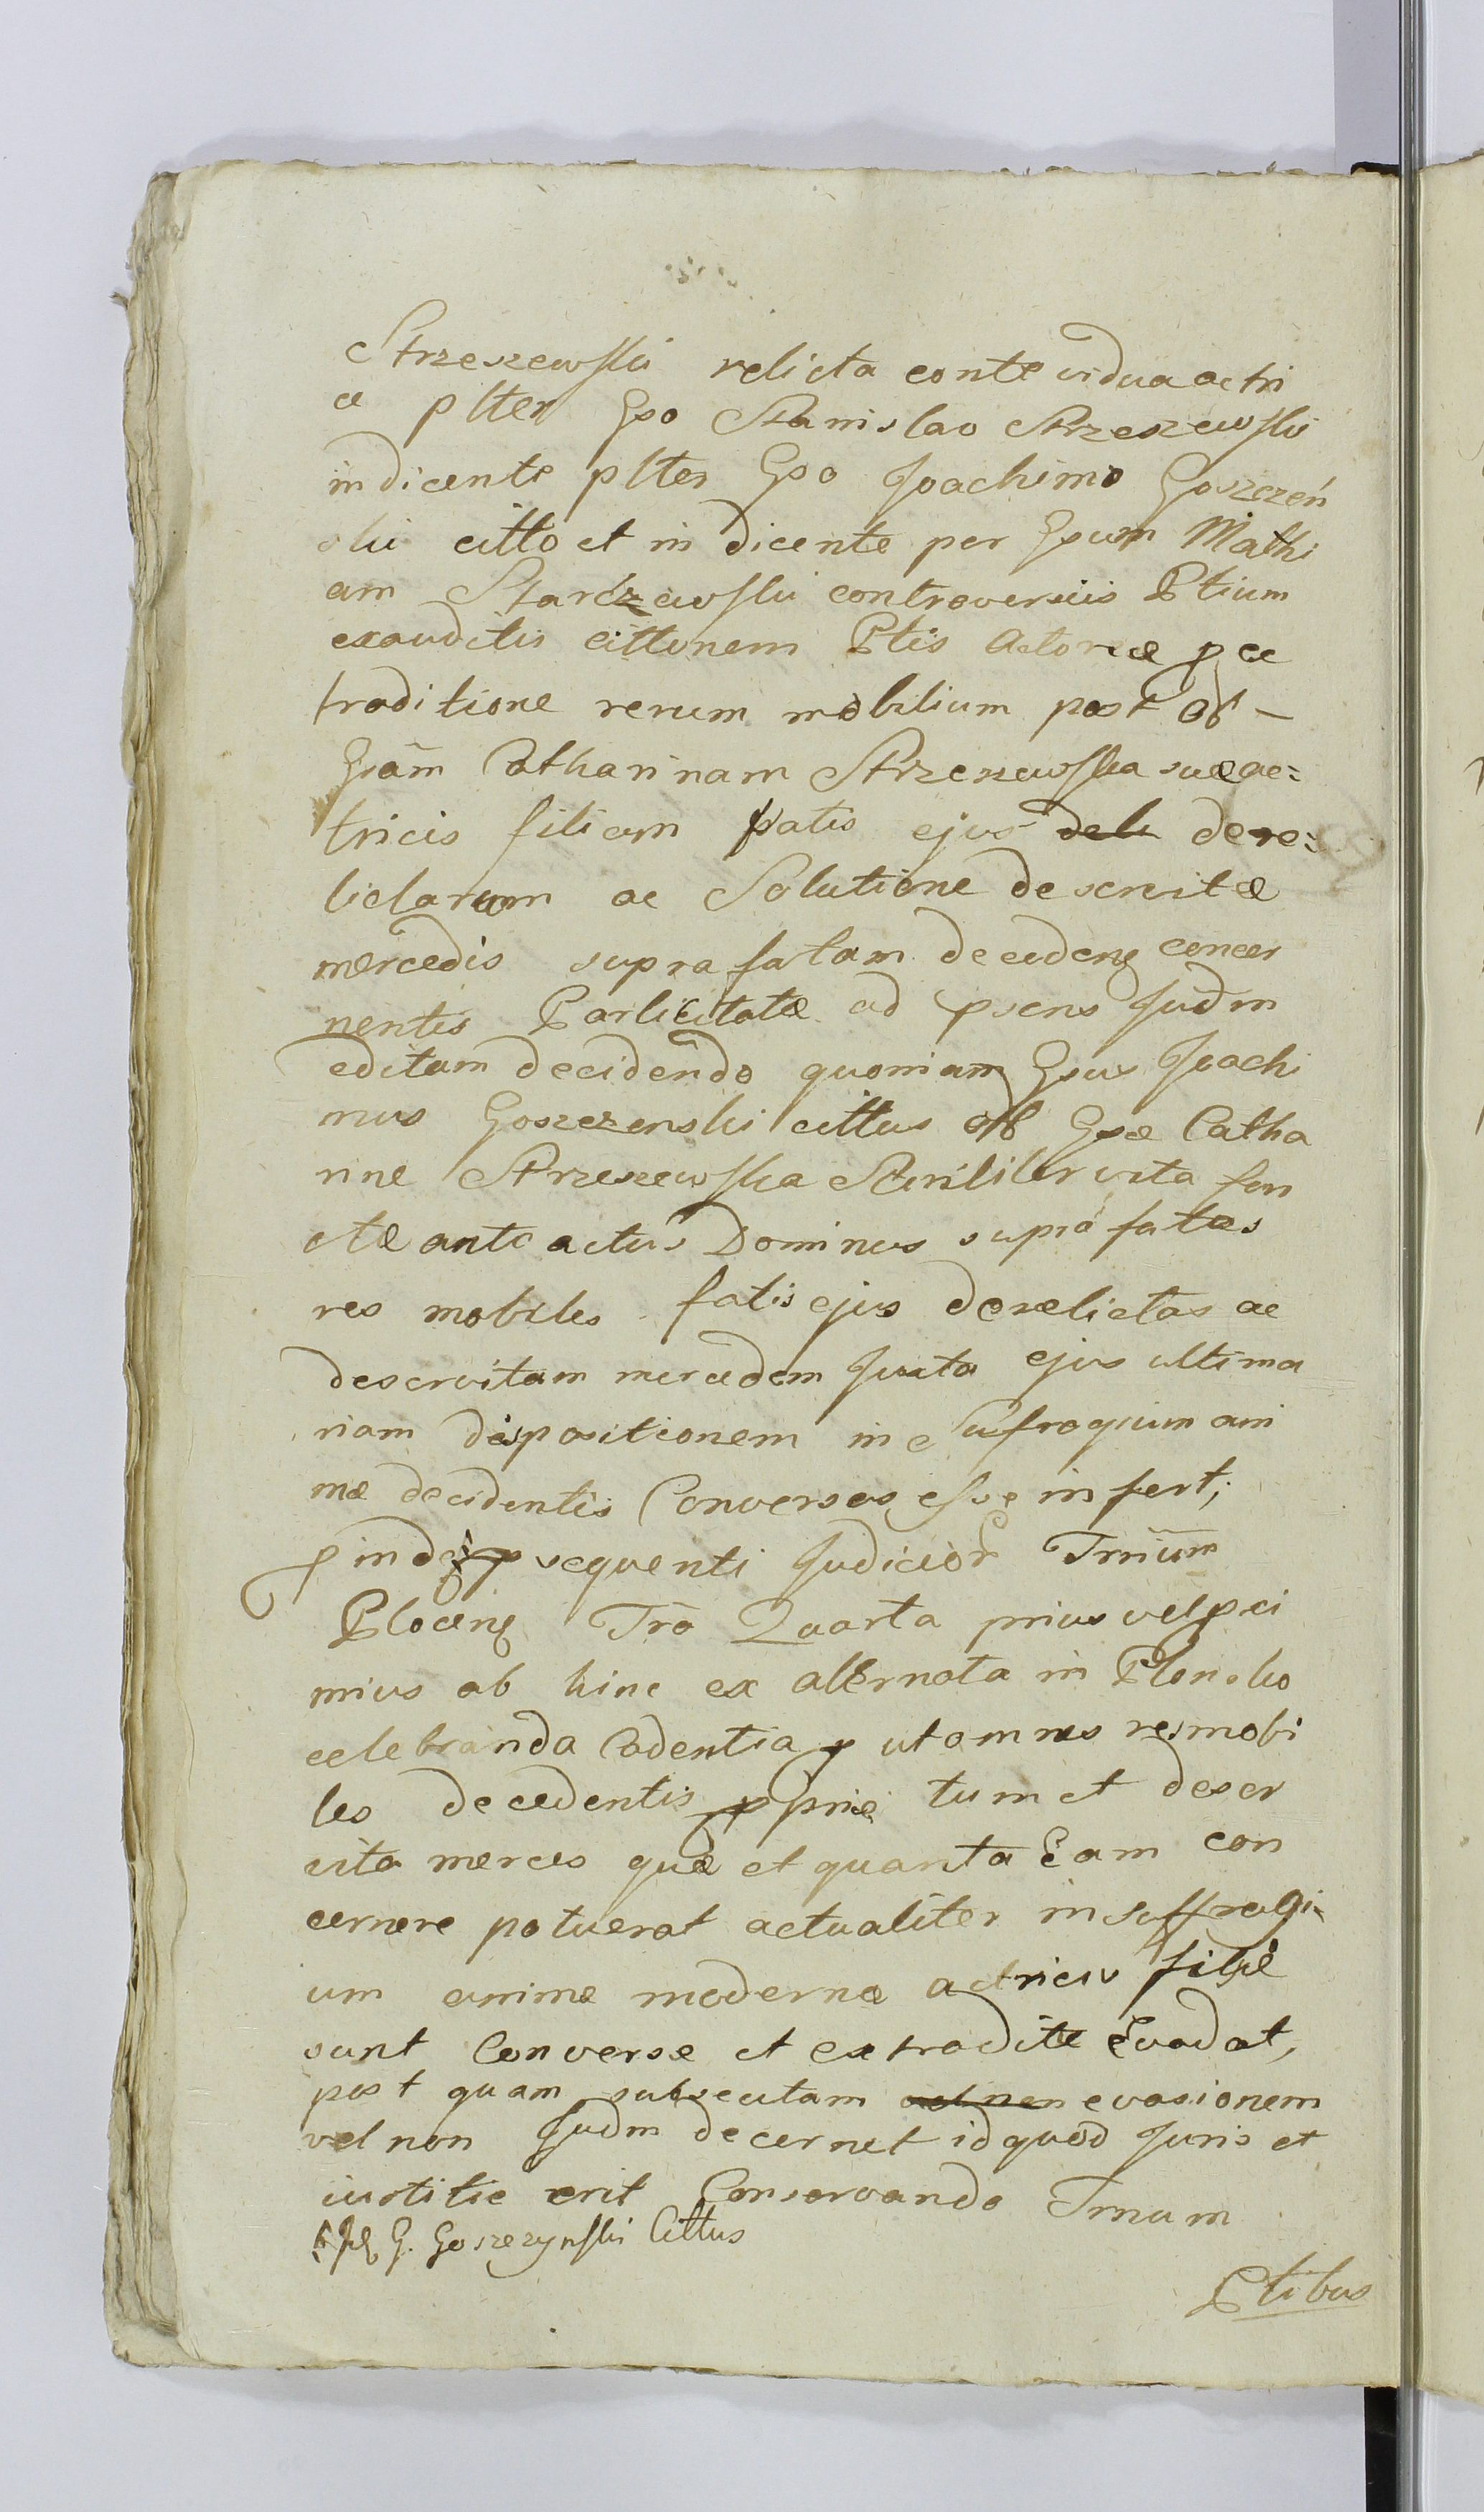 Strzeszewski relicta conte vidua actri
a plter Gso Stanislao Strzeszewski
indicente plter Gso Joachimo Goszczeń
ski citto et in dicente per Gsum Mathi
am Starczewski controversiis Ptium
exauditis cittonem Ptis Actoreæ p ex
traditione rerum mobilium post ol –
Gsam Catharinam Strzeszewska suæ ac=
tricis filiam fatis ejus dere=
lictarum ac Solutione deservitæ
mercedis supra fatam decedene concer
nentis Parlicitatæ ad psens Judm
editam decidendo quoniam Gsus Joachi
mus Goszczenski cittus olb Gsæ Catha
rine Strzeszewska Steriliter vita fun
ctæ ante actus Dominus supra fatas
res mobiles fatis ejus derelictas ac
deservitam mercedem Juxta ejus ultima
riam dispositionem in Sufragium ani
mæ decidentis Conversas esse infert;
pinde p sequenti Judicior Trnum
Plocen Tro Quarta prius vel pxi
mius ab hinc ex alternata in Plonsko
celebranda Cadentia p ut omnes res mobi
les decedentis pprie tum et deser
vita merces quæ et quanta Eam con
cernere potuerat actualiter in suffragi=
um animæ modernæ actricis filiæ
sunt Conversæ et extraditæ Evadat,
post quam subsecutam evasionem
vel non Judm decernet id quod Juris et
iustitie erit Conservando Trnum
G. Goszczynski Cittus
Ptibus